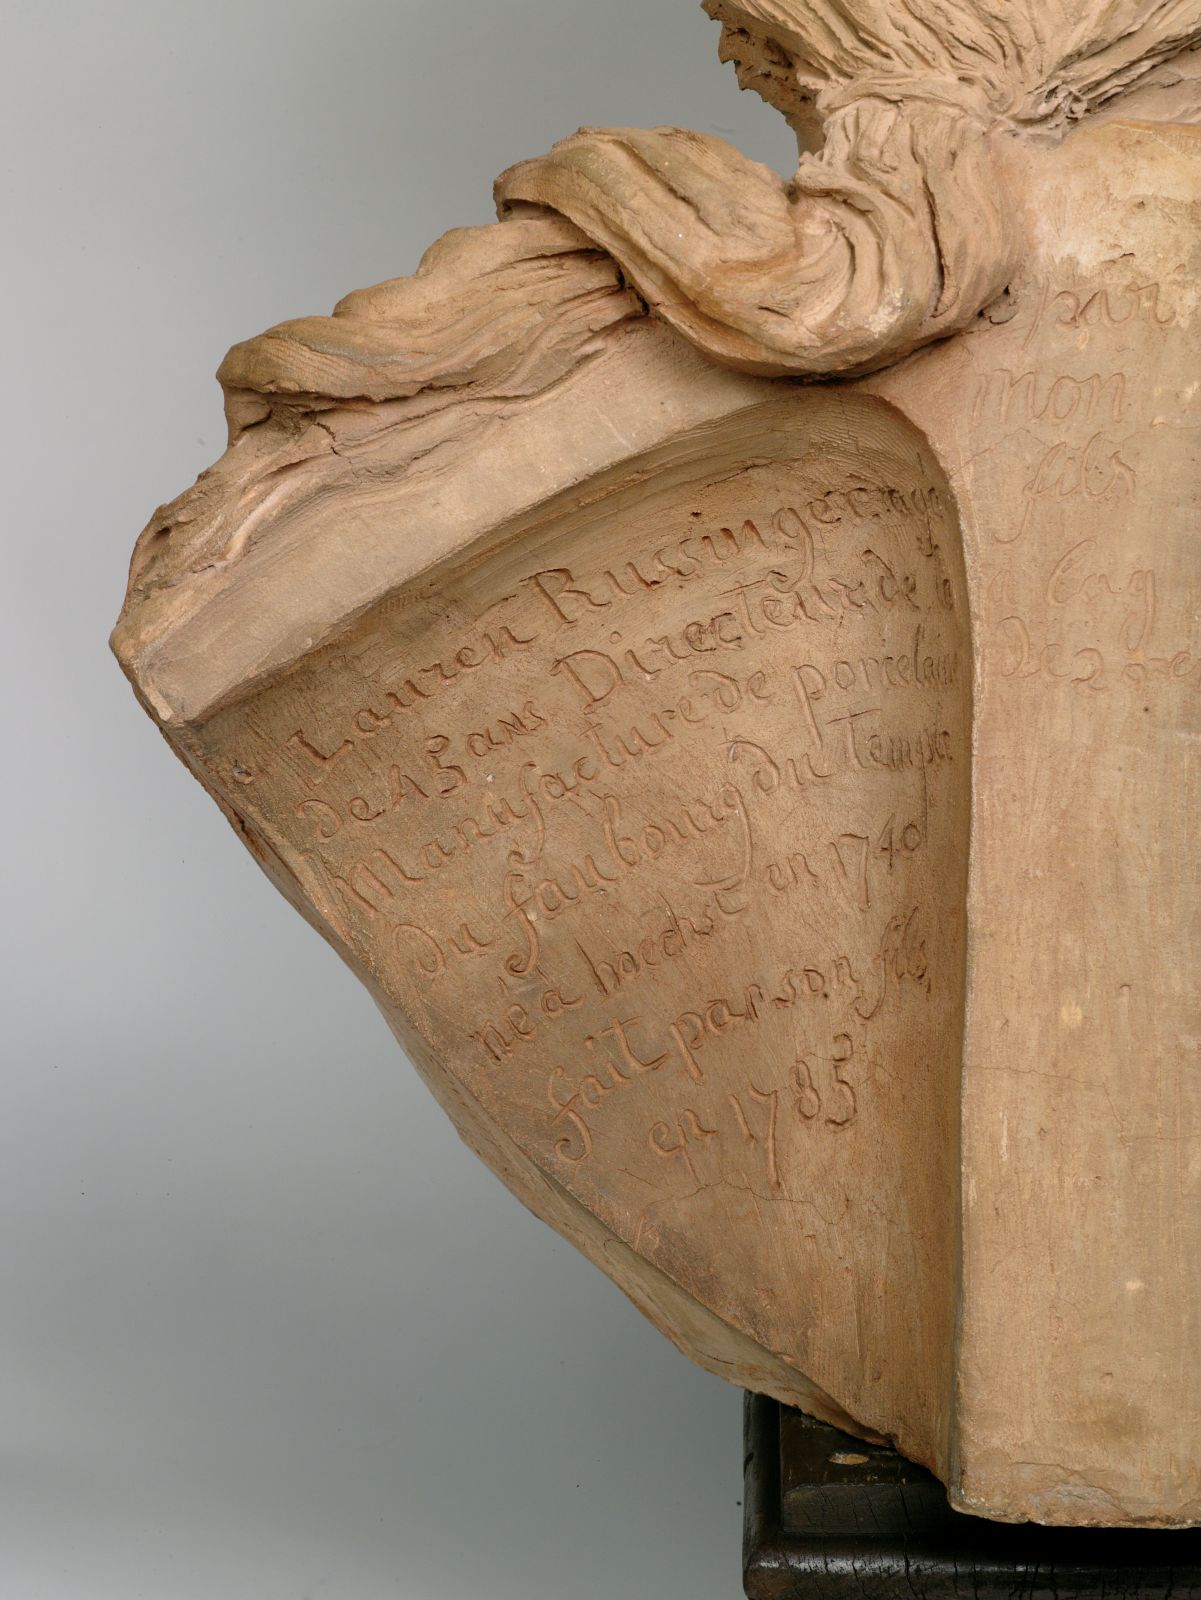 Lauren Russinger agé
de 45 ans Directeur de la
Manufacture de porcelaine
du faubourg du Temple
né à hoechst en 1740
fait par son fils
en 1785
par
mon
fils
a l'ag
de 2